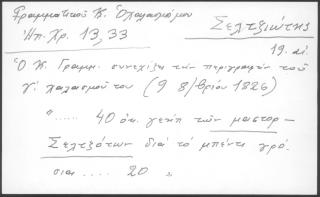 Γραμματικοῦ Κ.
Ἠπ. Χρ. 13, 33
Σελτζιώτης
19. αἰ
Ὁ Κ. Γραμμ. συνεχίζει τὴν περιγραφὴν τοῦ
γ' χαλασμοῦ του (9 8/βρίου 1826)
"...... 40 ὀκ. γενήμ τῶν μαστορ-
Σελτζιότων διὰ τὸ μπέντι γρό.
σια .... 20 "